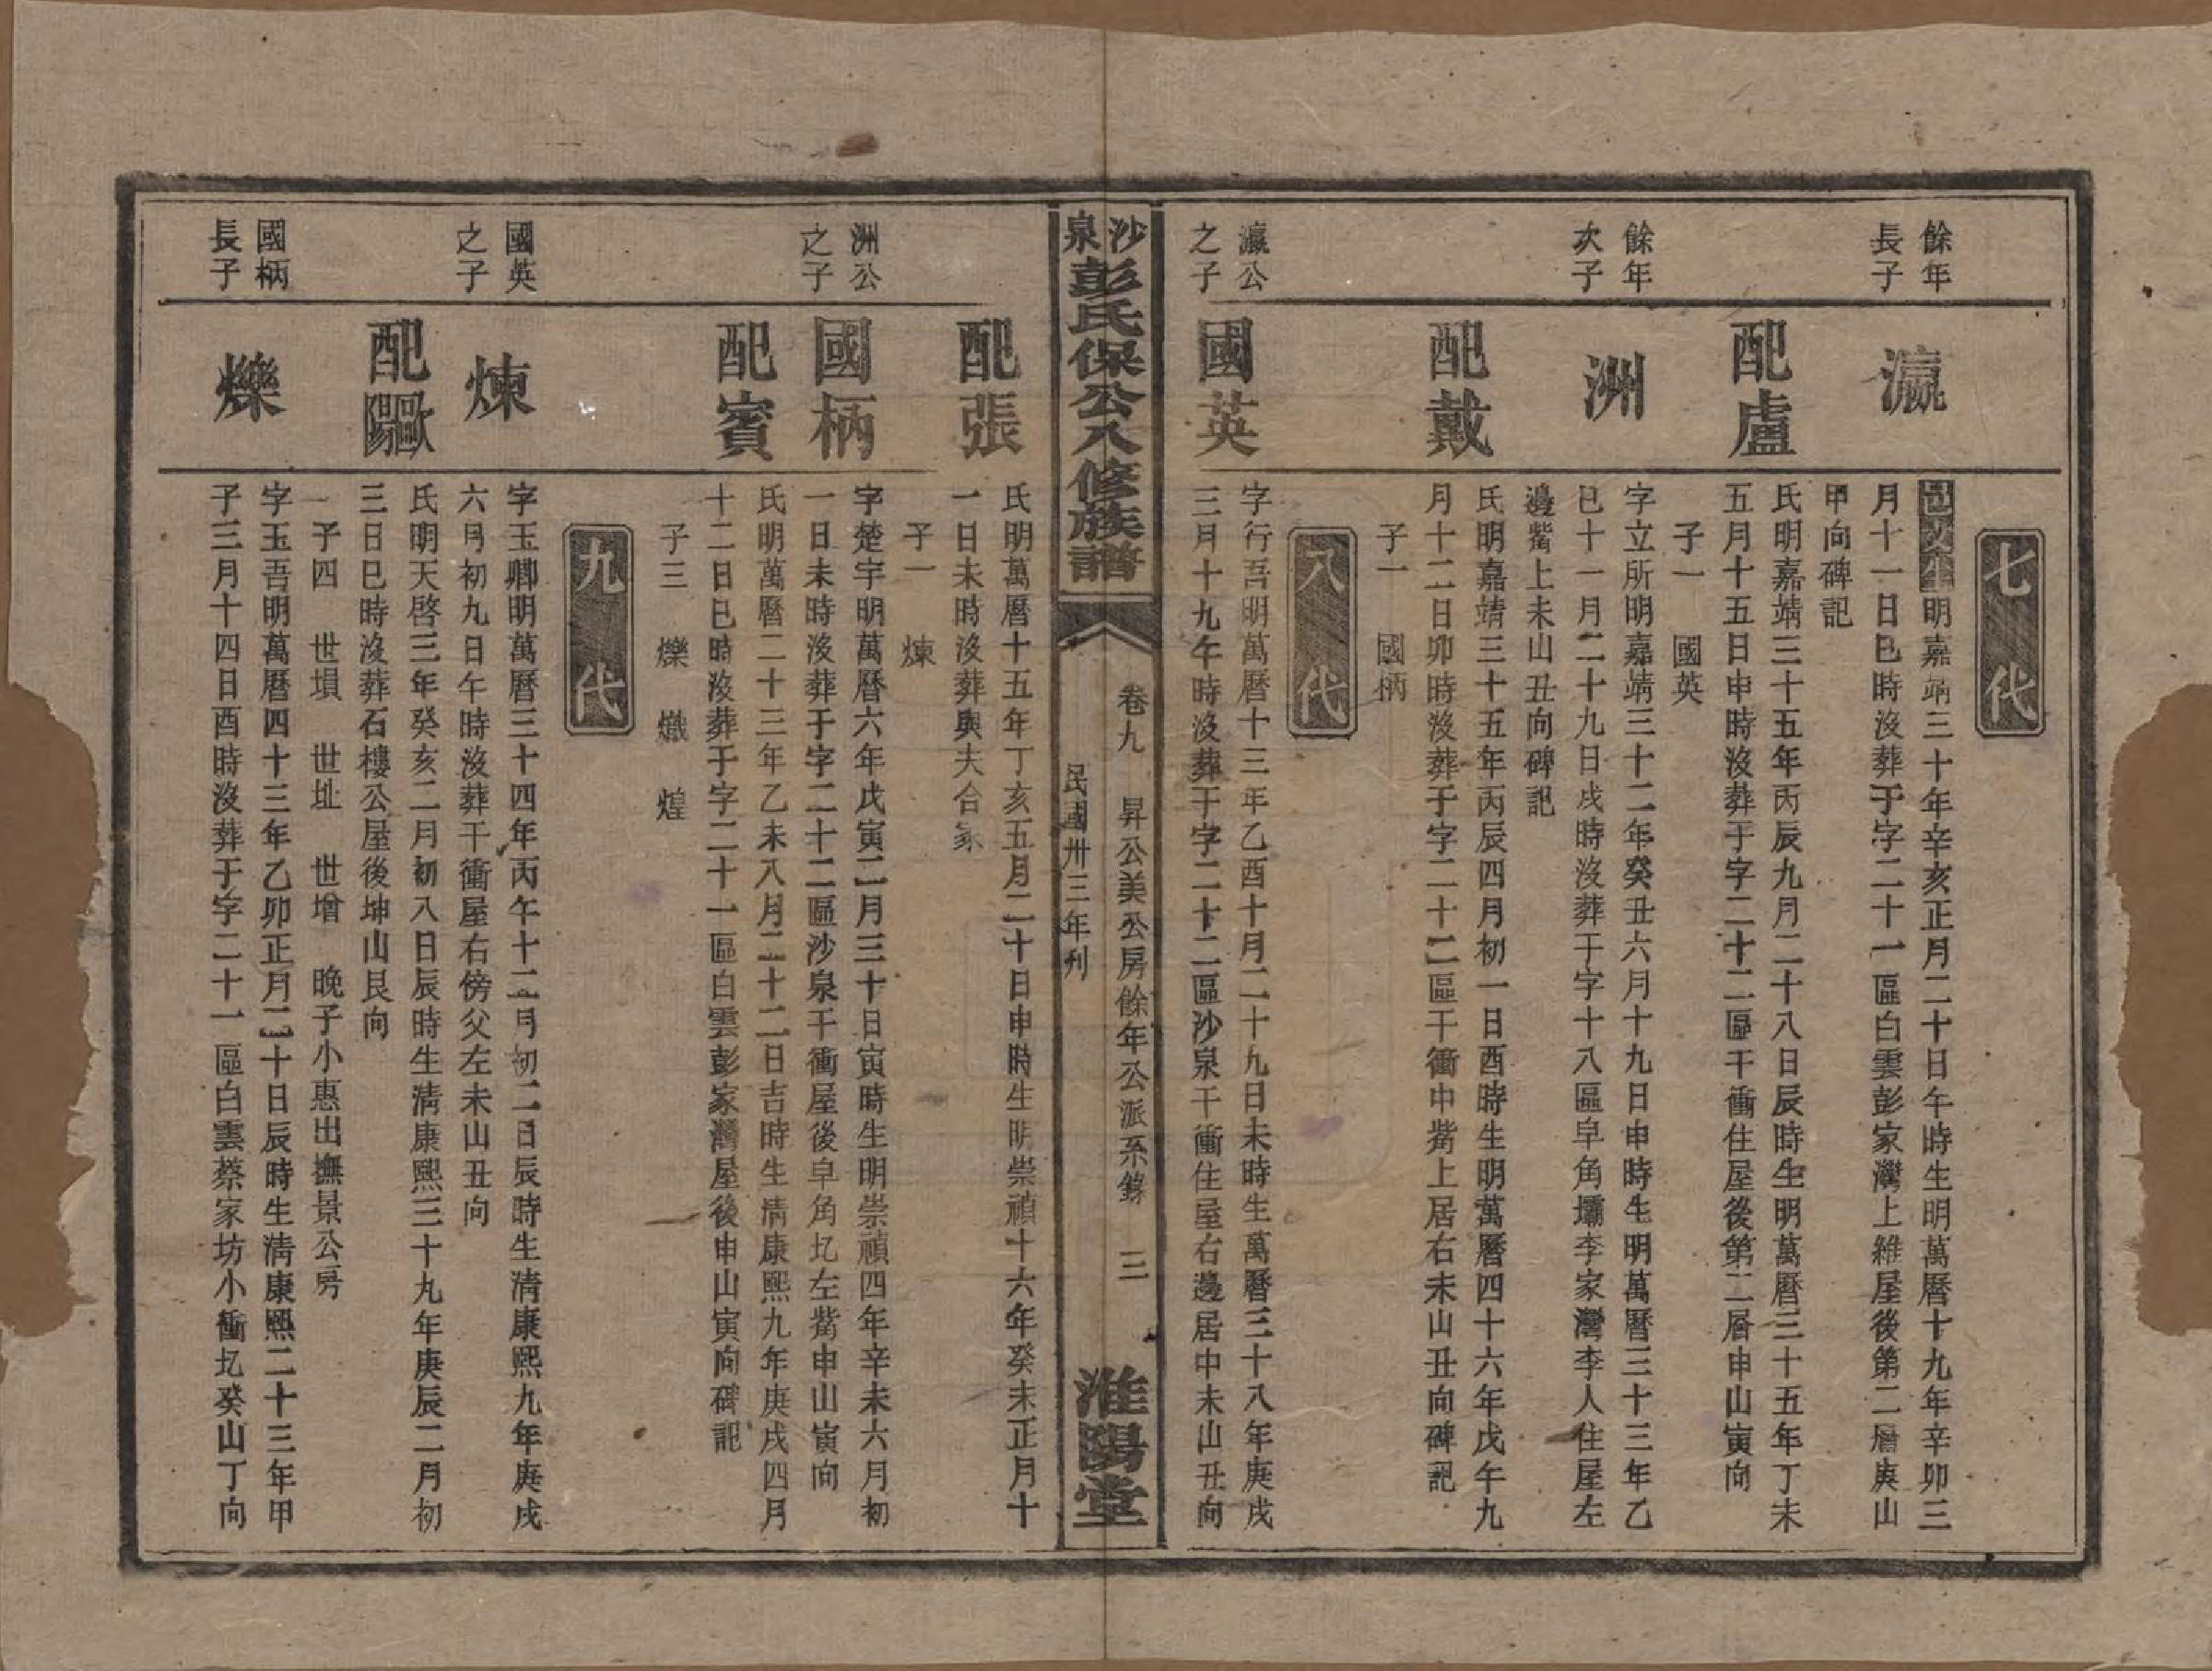 七代
餘年長子
瀛
明嘉靖三十年辛亥正月二十日午時生明萬曆十九年辛卯三
月十一日巳時沒葬于字二十一區白雲彭家灣上維屋後第二層庚山
甲向碑記
配盧
氏明嘉靖三十五年丙辰九月二十八日辰時生明萬曆三十五年丁未
五月十五日申時沒葬于字二十二區干衝住屋後第二層申山寅向
子一　國英
餘年次子
洲
字立所明嘉靖三十二年癸丑六月十九日申時生明萬曆三十三年乙
巳十一月二十九日戌時沒葬于字十八區皁角壩李家灣李人住屋左
邊觜上未山丑向碑記
配戴
氏明嘉靖三十五年丙辰四月初一日酉時生明萬曆四十六年戊午九
月十二日卯時沒葬于字二十二區干衝中觜上居右未山丑向碑記
子一　國柄
八代
瀛公之子
國英
字行吾明萬曆十三年乙酉十月二十九日未時生萬曆三十八年庚戌
三月十九午時沒葬于字二十二區沙泉干衝住屋右邊居中未山丑向
沙泉彭氏保公八修族譜
卷九　昇公美公房餘年公派系錄　三
民國卅三年刋
淮陽堂
配張
氏明萬曆十五年丁亥五月二十日申時生明崇禎十六年癸未正月十
一日未時沒葬與夫合冢
子一　煉
洲公之子
國柄
字楚宇明萬曆六年戊寅二月三十日寅時生明崇禎四年辛未六月初
一日未時沒葬于字二十二區沙泉干衝屋後皁角圠左觜申山寅向
配賓
氏明萬曆二十三年乙未八月二十二日吉時生清康熙九年庚戌四月
十二日巳時沒葬于字二十一區白雲彭家灣屋後申山寅向碑記
子三　爍　熾　煌
九代
國英之子
煉
字玉卿明萬曆三十四年丙午十二月初二日辰時生清康熙九年庚戌
六月初九日午時沒葬干衝屋右傍父左未山丑向
配歐陽
氏明天啓三年癸亥二月初八日辰時生清康熙三十九年庚辰二月初
三日巳時沒葬石樓公屋後坤山艮向
子四　世塤　世址　世增　晚子小惠出撫景公房
國柄長子
爍
字玉吾明萬曆四十三年乙卯正月二十日辰時生清康熙二十三年甲
子三月十四日酉時沒葬于字二十一區白雲蔡家坊小衝圠癸山丁向